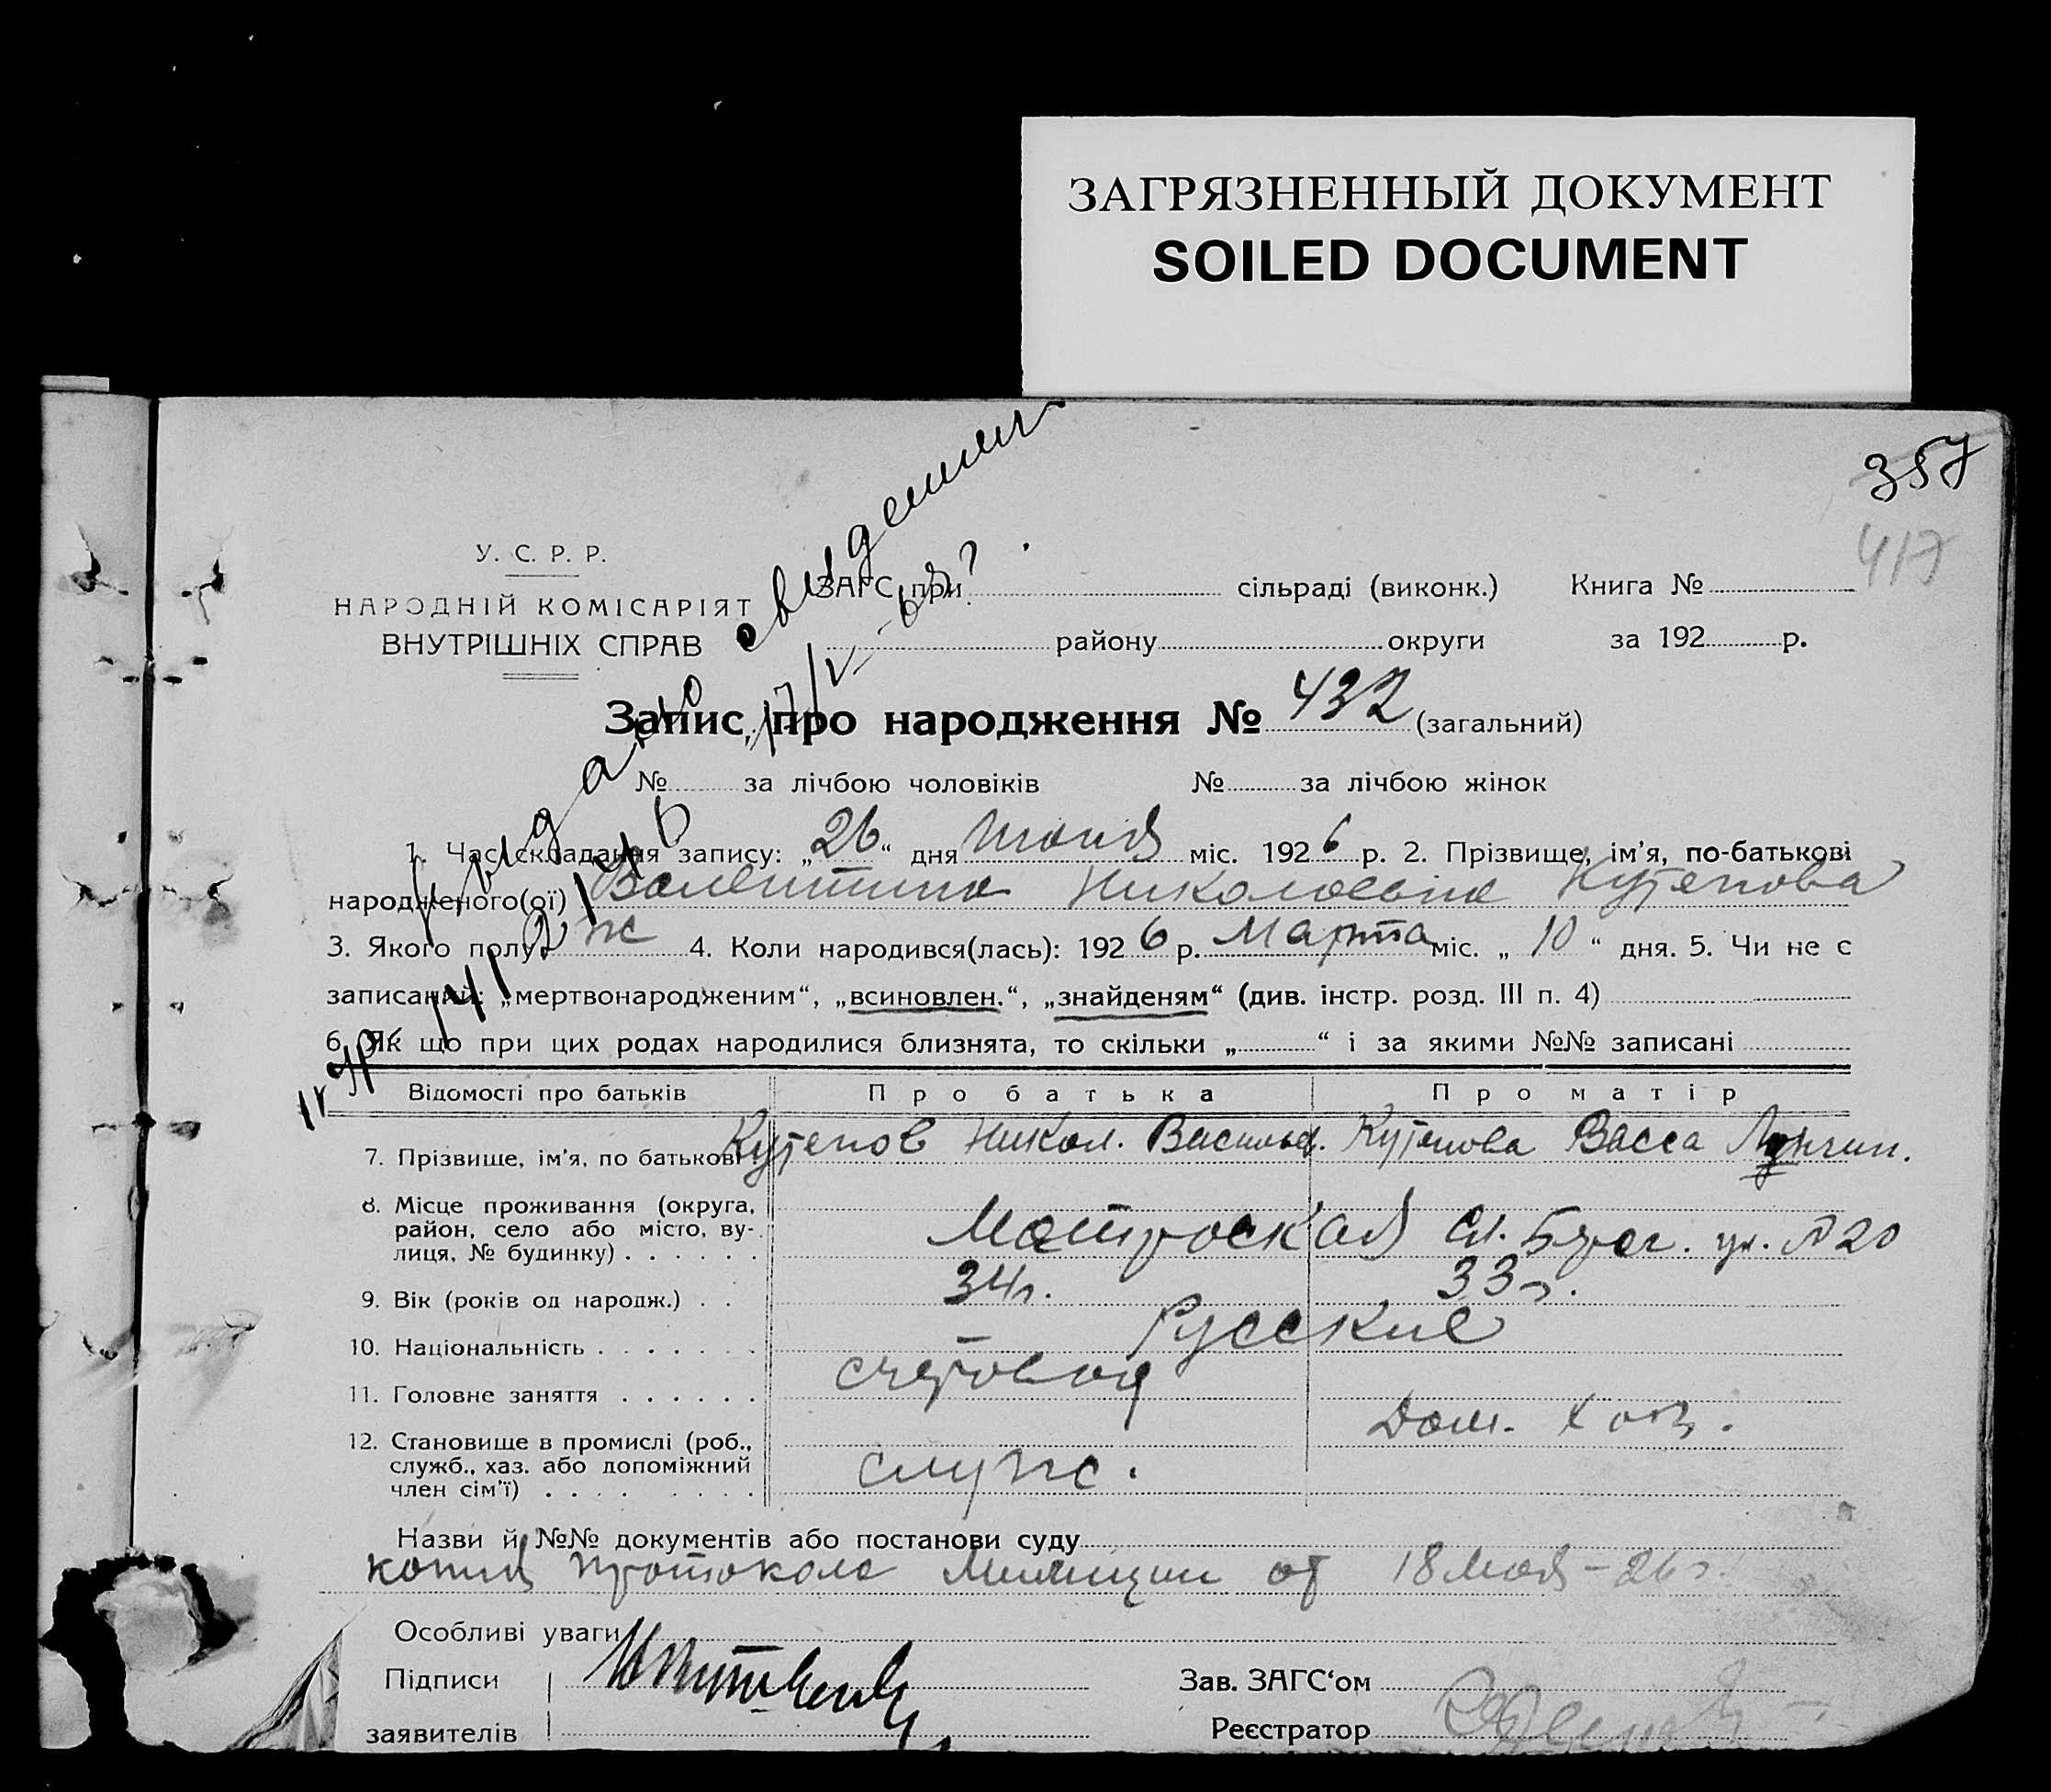 ЗАГРЯЗНЕННЫЙ ДОКУМЕНТ
SOILED DOCUMENT
357
417
У. С. Р. Р.
НАРОДНІЙ КОМІСАРІЯТ
ВНУТРІШНІХ СПРАВ
ЗАГС при сільраді (виконк.) Книга №
району округи за 192 р.
выдано свидетин
Запис про народження № 432 (загальний)
№ за лічбою чоловіків № за лічбою жінок
1. Час складання запису: „26“ дня Июня міс. 1926 р. 2. Прізвище, ім'я, по-батькові
народженого(ої) Валентина Николаевна Кутепова
3. Якого полу ж 4. Коли народився(лась): 1926 р. Марта міс. „10“ дня. 5. Чи не є
записаний: „мертвонародженим“, „всиновлен.“, „знайденям“ (див. інстр. розд. III п. 4)
6. Як що при цих родах народилися близнята, то скільки „ “ і за якими №№ записані
Відомості про батьків Про батька Про матір
7. Прізвище, ім'я, по батькові Кутепов Никол. Васильев. Кутепова Васса
8. Місце проживання (округа,
район, село або місто, ву-
лиця, № будинку) . . . . . . Матроская сл. ул. №20
9. Вік (років од народж.) . . 34г. 33г.
10. Національність . . . . . . . Русские
11. Головне заняття . . . . . . счетовод Дом. хоз.
12. Становище в промислі (роб.,
служб., хаз. або допоміжний
член сім'ї) . . . . . . . . . служ.
Назви й №№ документів або постанови суду
копия протокола Милиции от 18 мая - 26 г.
Особливі уваги
Підписи Зав. ЗАГС'ом
заявителів Реєстратор